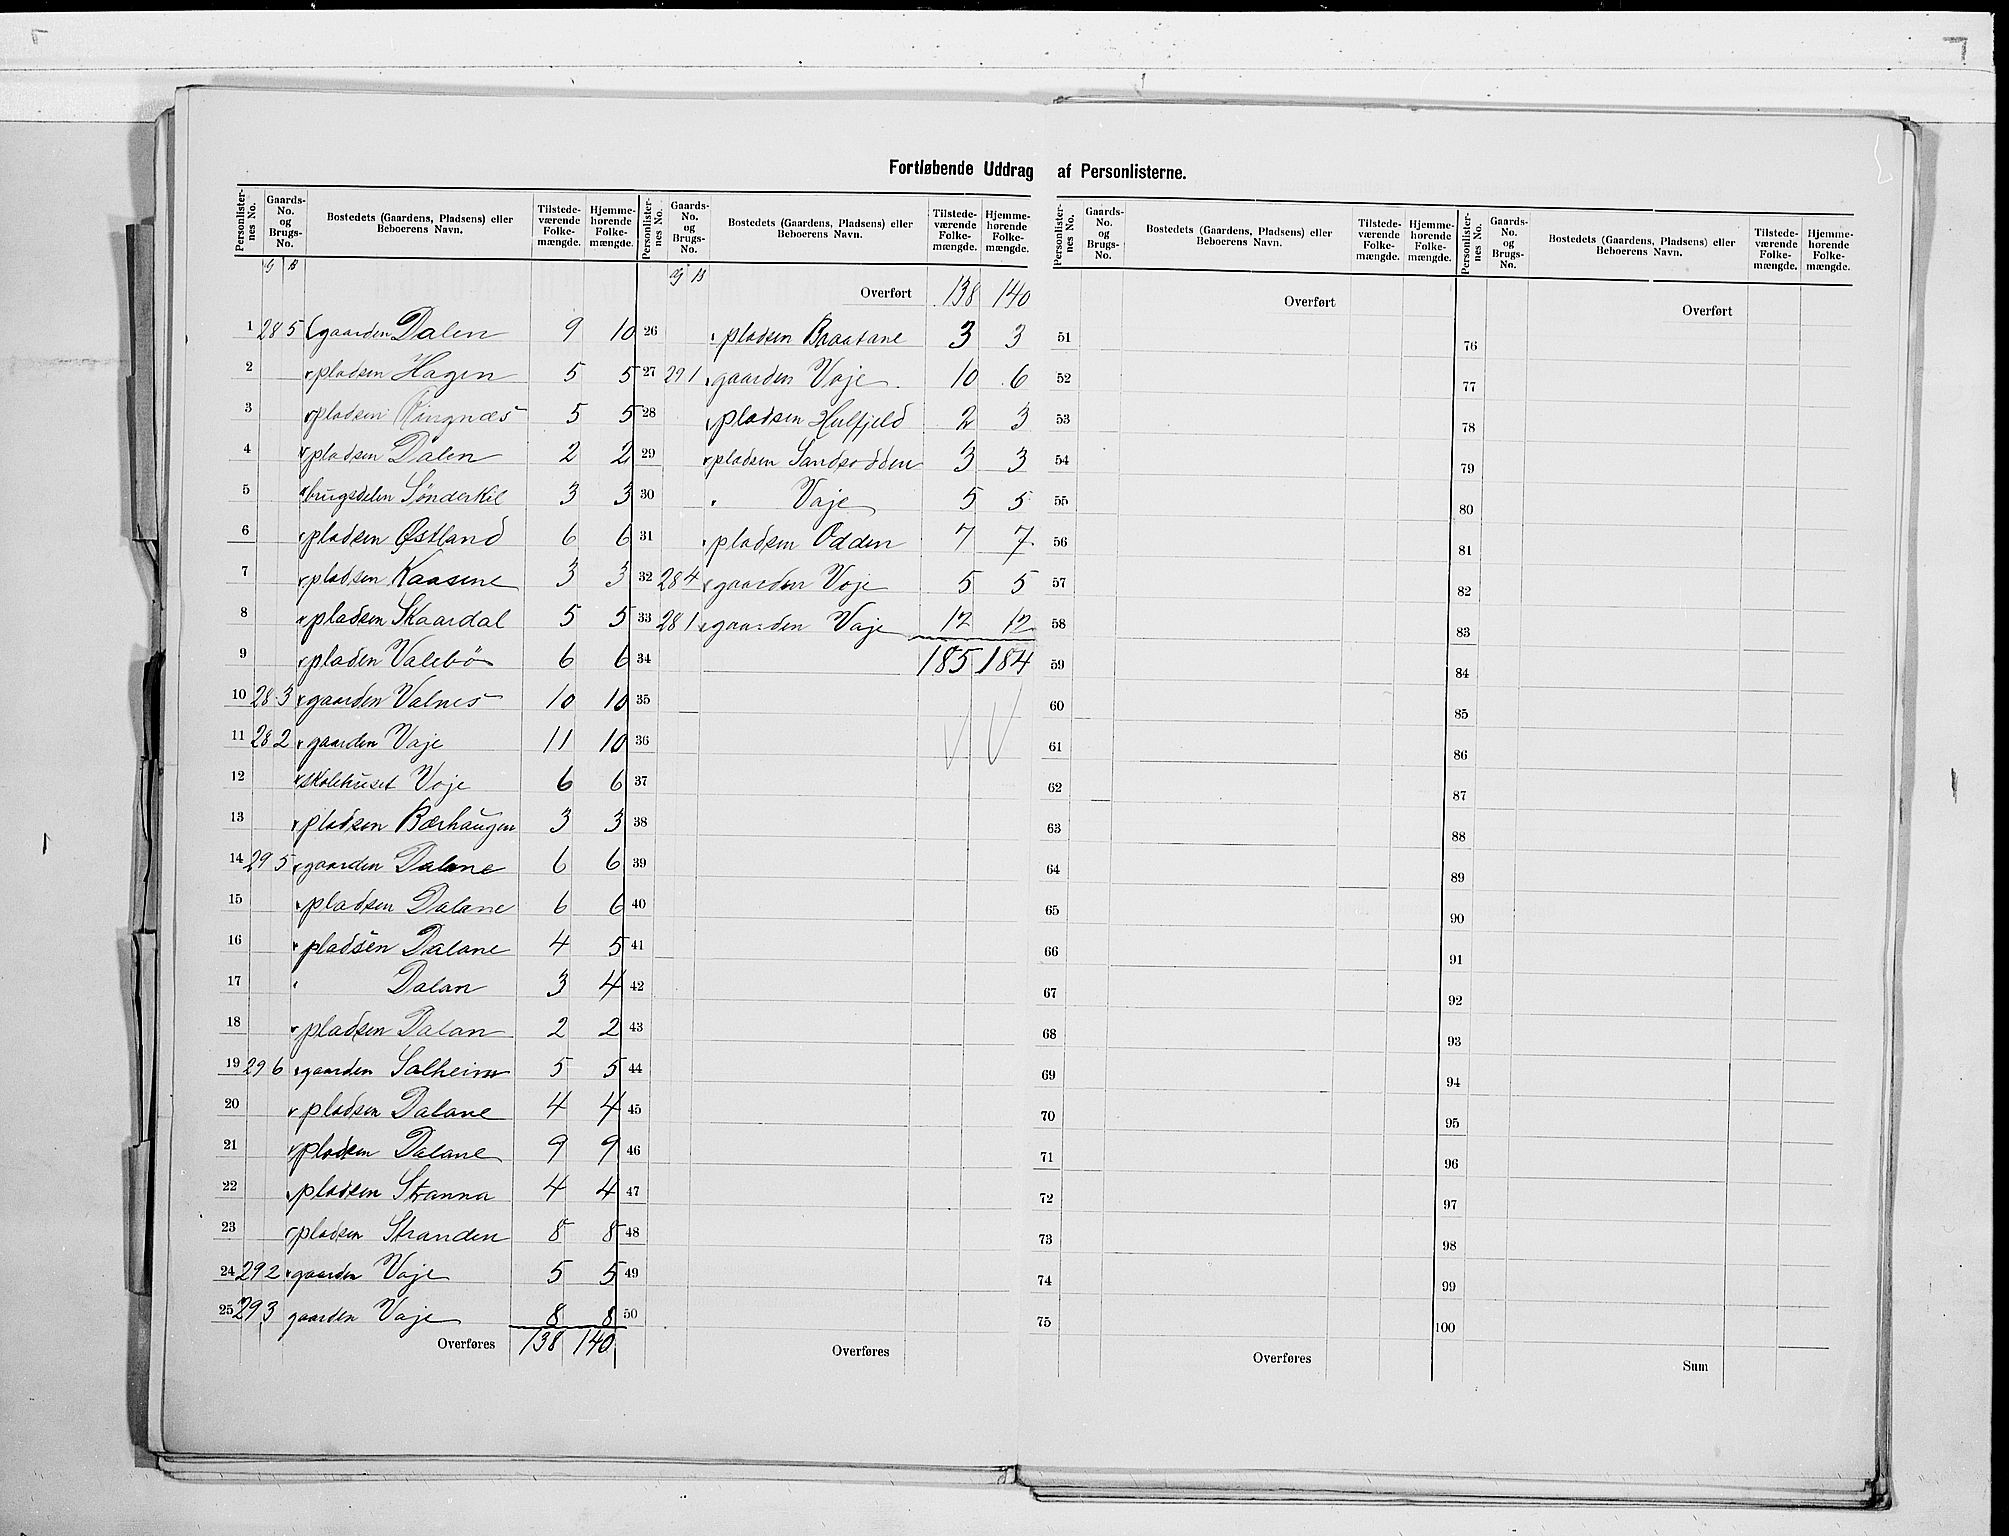 Fortløbende Uddrag af Personlisterne.
Personlister-nes No. Gaards-No. og Brugs-No. Bostedets (Gaardens, Pladsens) eller Beboerens Navn. Tilstede-værende Folke-mængde. Hjemme-hørende Folke-mængde.
G B
1 28 5 gaarden Dalen 9 10
2 pladsen Hagen 5 5
3 pladsen Ringnæs 5 5
4 pladsen Dalen 2 2
5 brugsdelen Sønderkil 3 3
6 pladsen Østland 6 6
7 pladsen Kaasene 3 3
8 pladsen Skaardal 5 5
9 pladen Valebö 6 6
10 28 3 gaarden Valnes 10 10
11 28 2 gaarden Vaje 11 10
12 skolehuset Voje 6 6
13 pladsen Bærhaugen 3 3
14 29 5 gaarden Dalane 6 6
15 pladsen Dalane 6 6
16 pladsen Dalane 4 5
17 " Dalan 3 4
18 pladsen Dalan 2 2
19 29 6 gaarden Solheim 5 5
20 pladsen Dalane 4 4
21 pladsen Dalane 9 9
22 pladsen Stranna 4 4
23 pladsen Stranden 8 8
24 29 2 gaarden Vaje 5 5
25 29 3 gaarden Vaje 8 8
Overføres 138 140
Personlister-nes No. Gaards-No. og Brugs-No. Bostedets (Gaardens, Pladsens) eller Beboerens Navn. Tilstede-værende Folke-mængde. Hjemme-hørende Folke-mængde.
G B
Overført 138 140
26 pladsen Braatane 3 3
27 29 1 gaarden Vaje 10 6
28 pladsen Hulfjeld 2 3
29 pladsen Sandsodden 3 3
30 " Vaje 5 5
31 pladsen Odden 7 7
32 28 4 gaarden Voje 5 5
33 28 1 gaarden Vaje 12 12
34 185 184
35
36
37
38
39
40
41
42
43
44
45
46
47
48
49
50
Overføres
Personlister-nes No. Gaards-No. og Brugs-No. Bostedets (Gaardens, Pladsens) eller Beboerens Navn. Tilstede-værende Folke-mængde. Hjemme-hørende Folke-mængde.
Overført
51
52
53
54
55
56
57
58
59
60
61
62
63
64
65
66
67
68
69
70
71
72
73
74
75
Overføres
Personlister-nes No. Gaards-No. og Brugs-No. Bostedets (Gaardens, Pladsens) eller Beboerens Navn. Tilstede-værende Folke-mængde. Hjemme-hørende Folke-mængde.
Overført
76
77
78
79
80
81
82
83
84
85
86
87
88
89
90
91
92
93
94
95
96
97
98
99
100
Sum